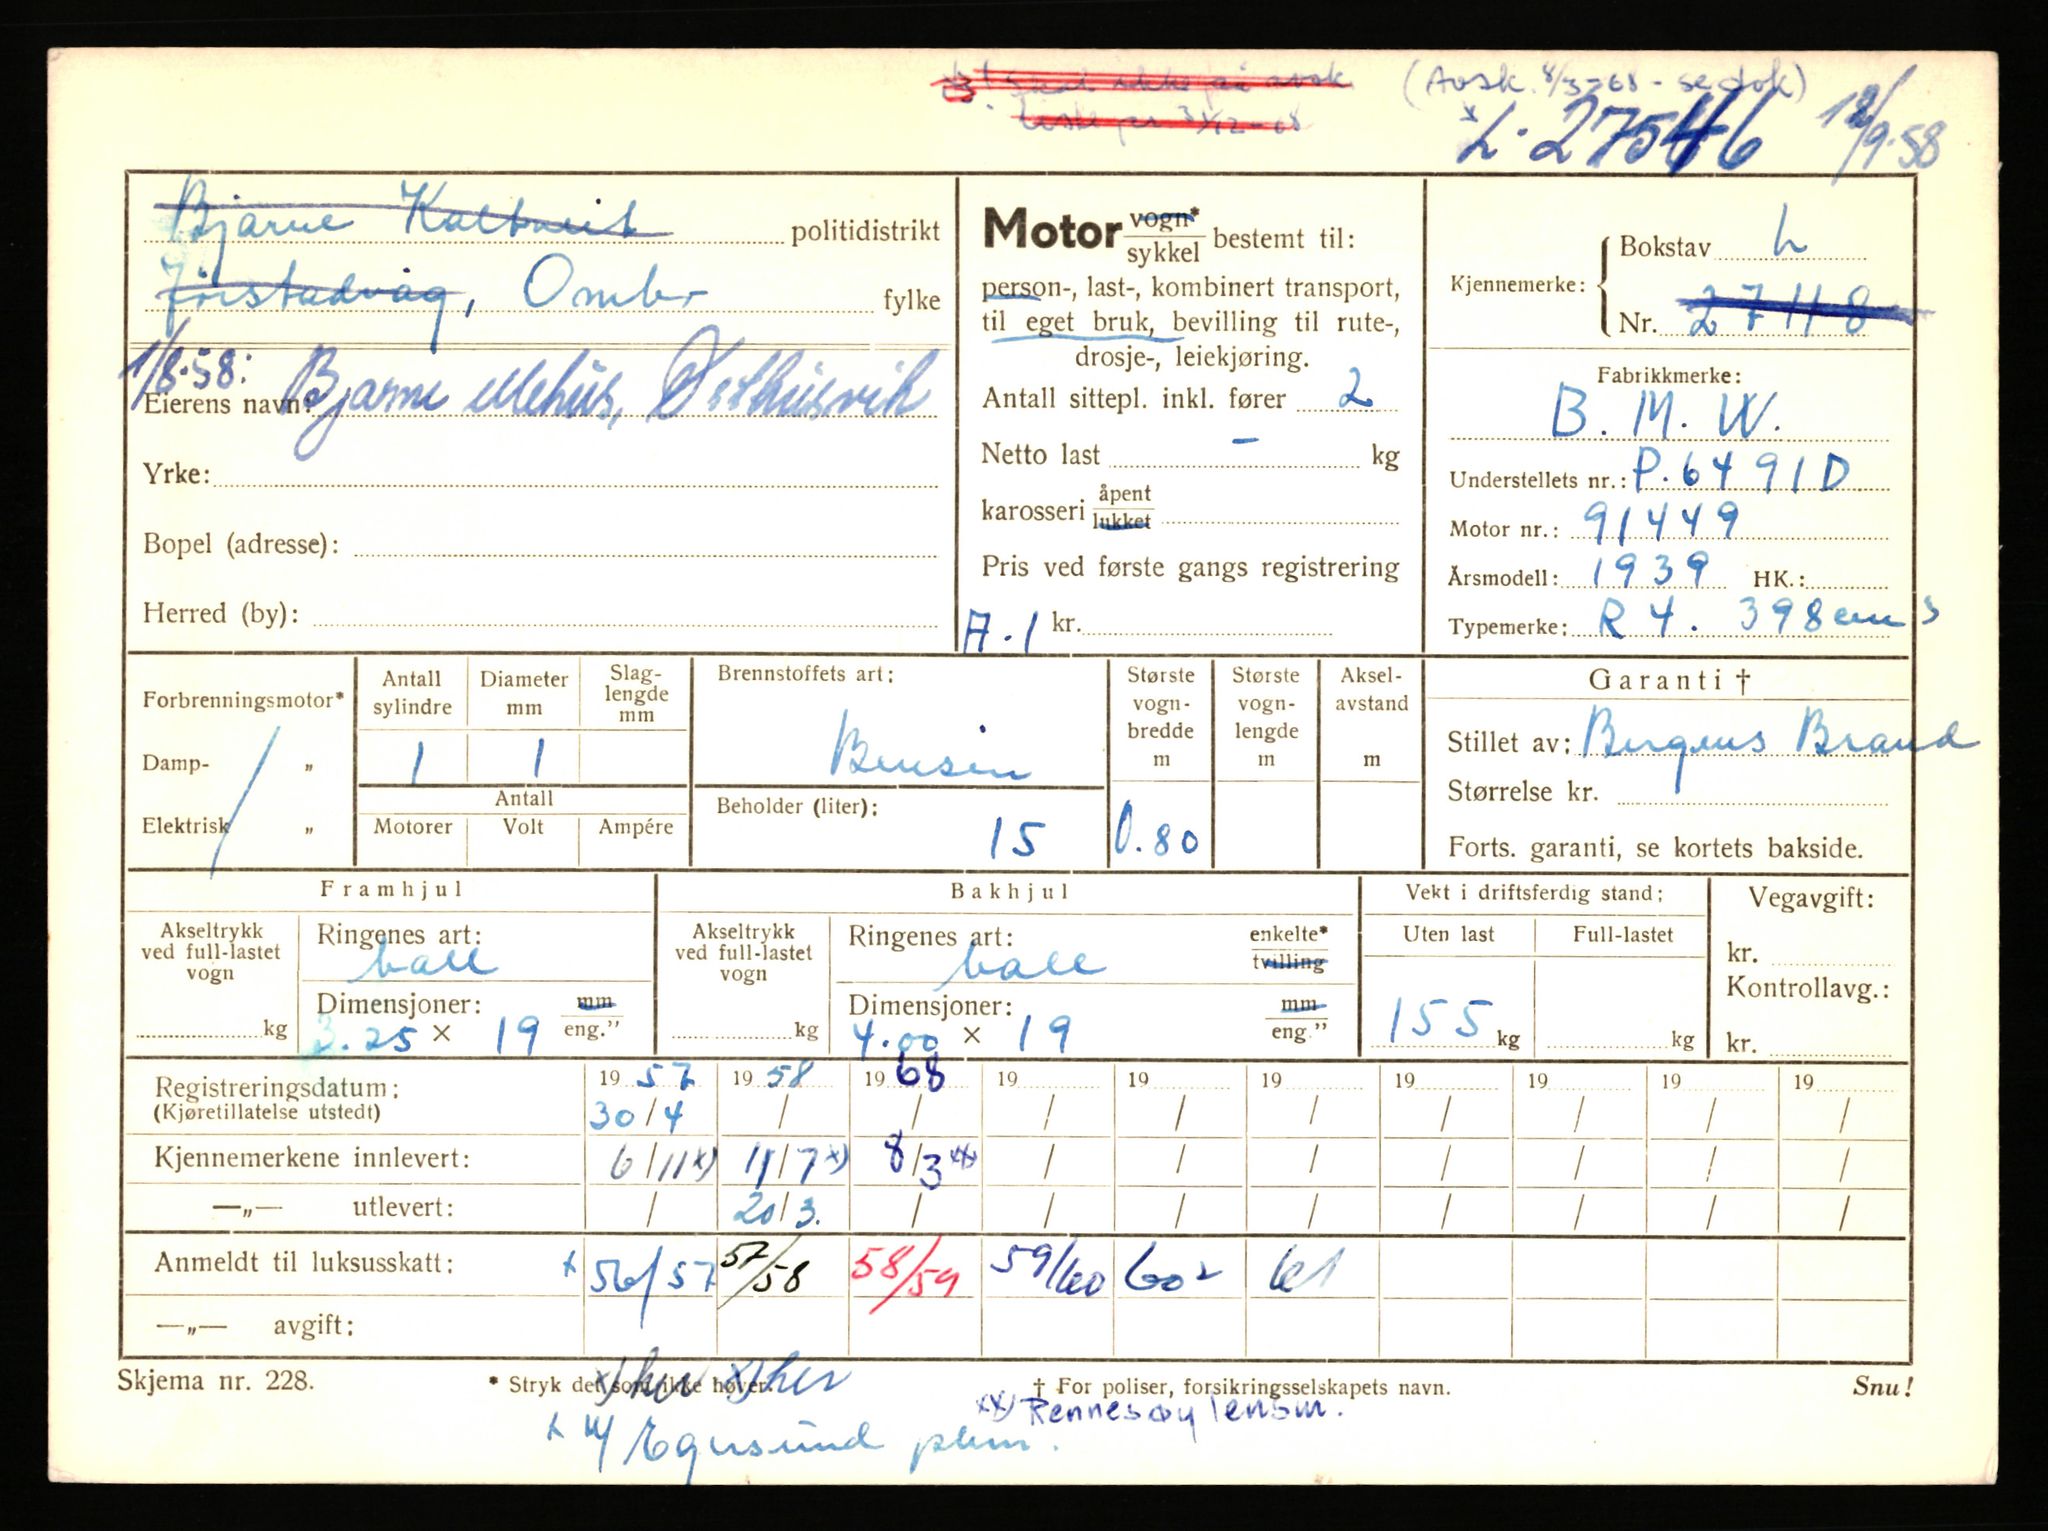 Skal ikke på avsk. (Avsk. 8/3-68 - se dok)
liste per 31/12-68
x L-27546 12/9-58
Bjarne Kaltveit politidistrikt
Jørstadvåg, Ombo fylke
1/8-58: Bjarne Mehus, Østhusvik
Eierens navn:
Yrke:
Bopel (adresse):
Herred (by):
Motor vogn* sykkel bestemt til:
person-, last-, kombinert transport,
til eget bruk, bevilling til rute-,
drosje-, leiekjøring.
Antall sittepl. inkl. fører 2
Netto last - kg
karosseri åpent lukket
Pris ved første gangs registrering
A-1 kr.
Kjennemerke: Bokstav L
Nr. 27118
Fabrikkmerke:
B. M. W.
Understellets nr.: P. 6491D
Motor nr.: 91449
Årsmodell: 1939 HK.:
Typemerke: R 4. 398cm3
Forbrenningsmotor*
Damp- „
Elektrisk „
Antall sylindre Diameter mm Slag-lengde mm
1 1
Antall
Motorer Volt Ampére
Brennstoffets art:
Bensin
Beholder (liter):
15
Største vogn-bredde m Største vogn-lengde m Aksel-avstand m
0.80
Garanti †
Stillet av: Bergens Brand
Størrelse kr.
Forts. garanti, se kortets bakside.
Framhjul
Akseltrykk ved full-lastet vogn
kg
Ringenes art:
ball
Dimensjoner: mm
3.25 × 19 eng.”
Bakhjul
Akseltrykk ved full-lastet vogn
kg
Ringenes art: enkelte* tvilling
ball
Dimensjoner: mm
4.00 × 19 eng.”
Vekt i driftsferdig stand:
Uten last Full-lastet
155 kg kg
Vegavgift:
kr.
Kontrollavg.:
kr.
Registreringsdatum: 19 57 19 58 19 68 19 19 19 19 19 19 19
(Kjøretillatelse utstedt) 30/4 / / / / / / / / /
Kjennemerkene innlevert: 6/11 x) 11/7 x) 8/3 xx) / / / / / / /
—„— utlevert: / 20/3. / / / / / / / /
Anmeldt til luksusskatt: x 56/57 57/58 58/59 59/60 60² 61
—„— avgift:
Skjema nr. 228. * Stryk det som ikke høver. † For poliser, forsikringsselskapets navn. Snu!
x) her x) her
xx) Rennesøy lensm.
x Egersund pkm.